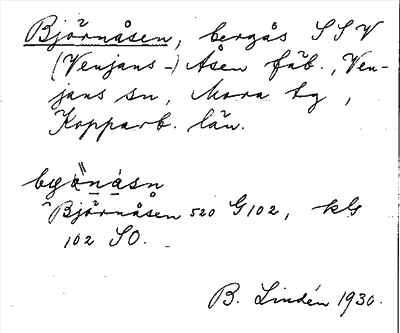 Björnåsen, bergås SSV
(Venjans-) Åsen fäb., Ven-
jans sn, Mora tg,
Kopparb. län.
Björnåsen 520 G102, kls
102 SO.
B. Lindén 1930.